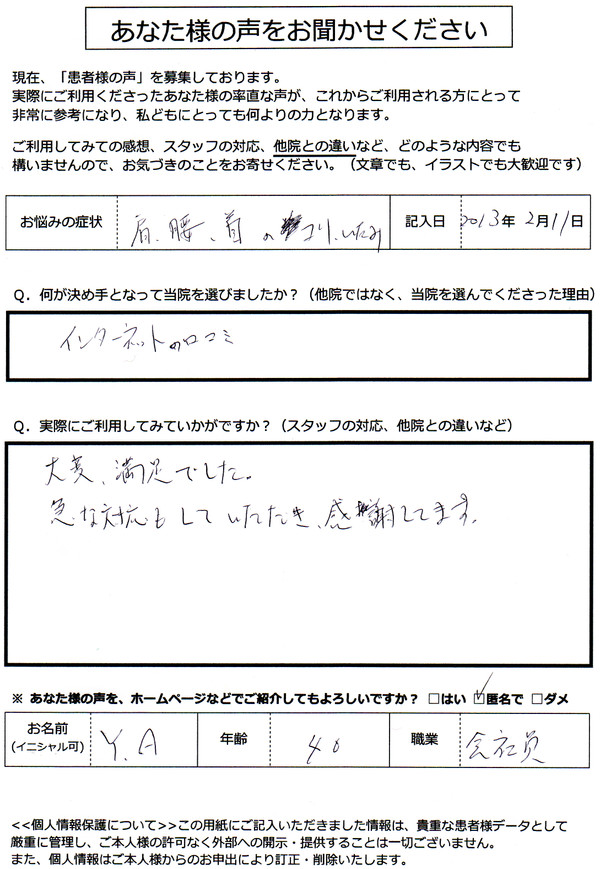 あなた様の声をお聞かせください
現在、「患者様の声」を募集しております。
実際にご利用くださったあなた様の率直な声が、これからご利用される方にとって
非常に参考になり、私どもにとっても何よりの力となります。
ご利用してみての感想、スタッフの対応、他院との違いなど、どのような内容でも
構いませんので、お気づきのことをお寄せください。（文章でも、イラストでも大歓迎です）
お悩みの症状 肩、腰、首のコリ、いたみ 記入日 2013年 2月11日
Q．何が決め手となって当院を選びましたか？（他院ではなく、当院を選んでくださった理由）
インターネットの口コミ
Q．実際にご利用してみていかがですか？（スタッフの対応、他院との違いなど）
大変、満足でした。
急な対応もしていただき、感謝してます。
※ あなた様の声を、ホームページなどでご紹介してもよろしいですか？ □はい ☑匿名で □ダメ
お名前 (イニシャル可) Y.A 年齢 40 職業 会社員
<<個人情報保護について>>この用紙にご記入いただきました情報は、貴重な患者様データとして
厳重に管理し、ご本人様の許可なく外部への開示・提供することは一切ございません。
また、個人情報はご本人様からのお申出により訂正・削除いたします。